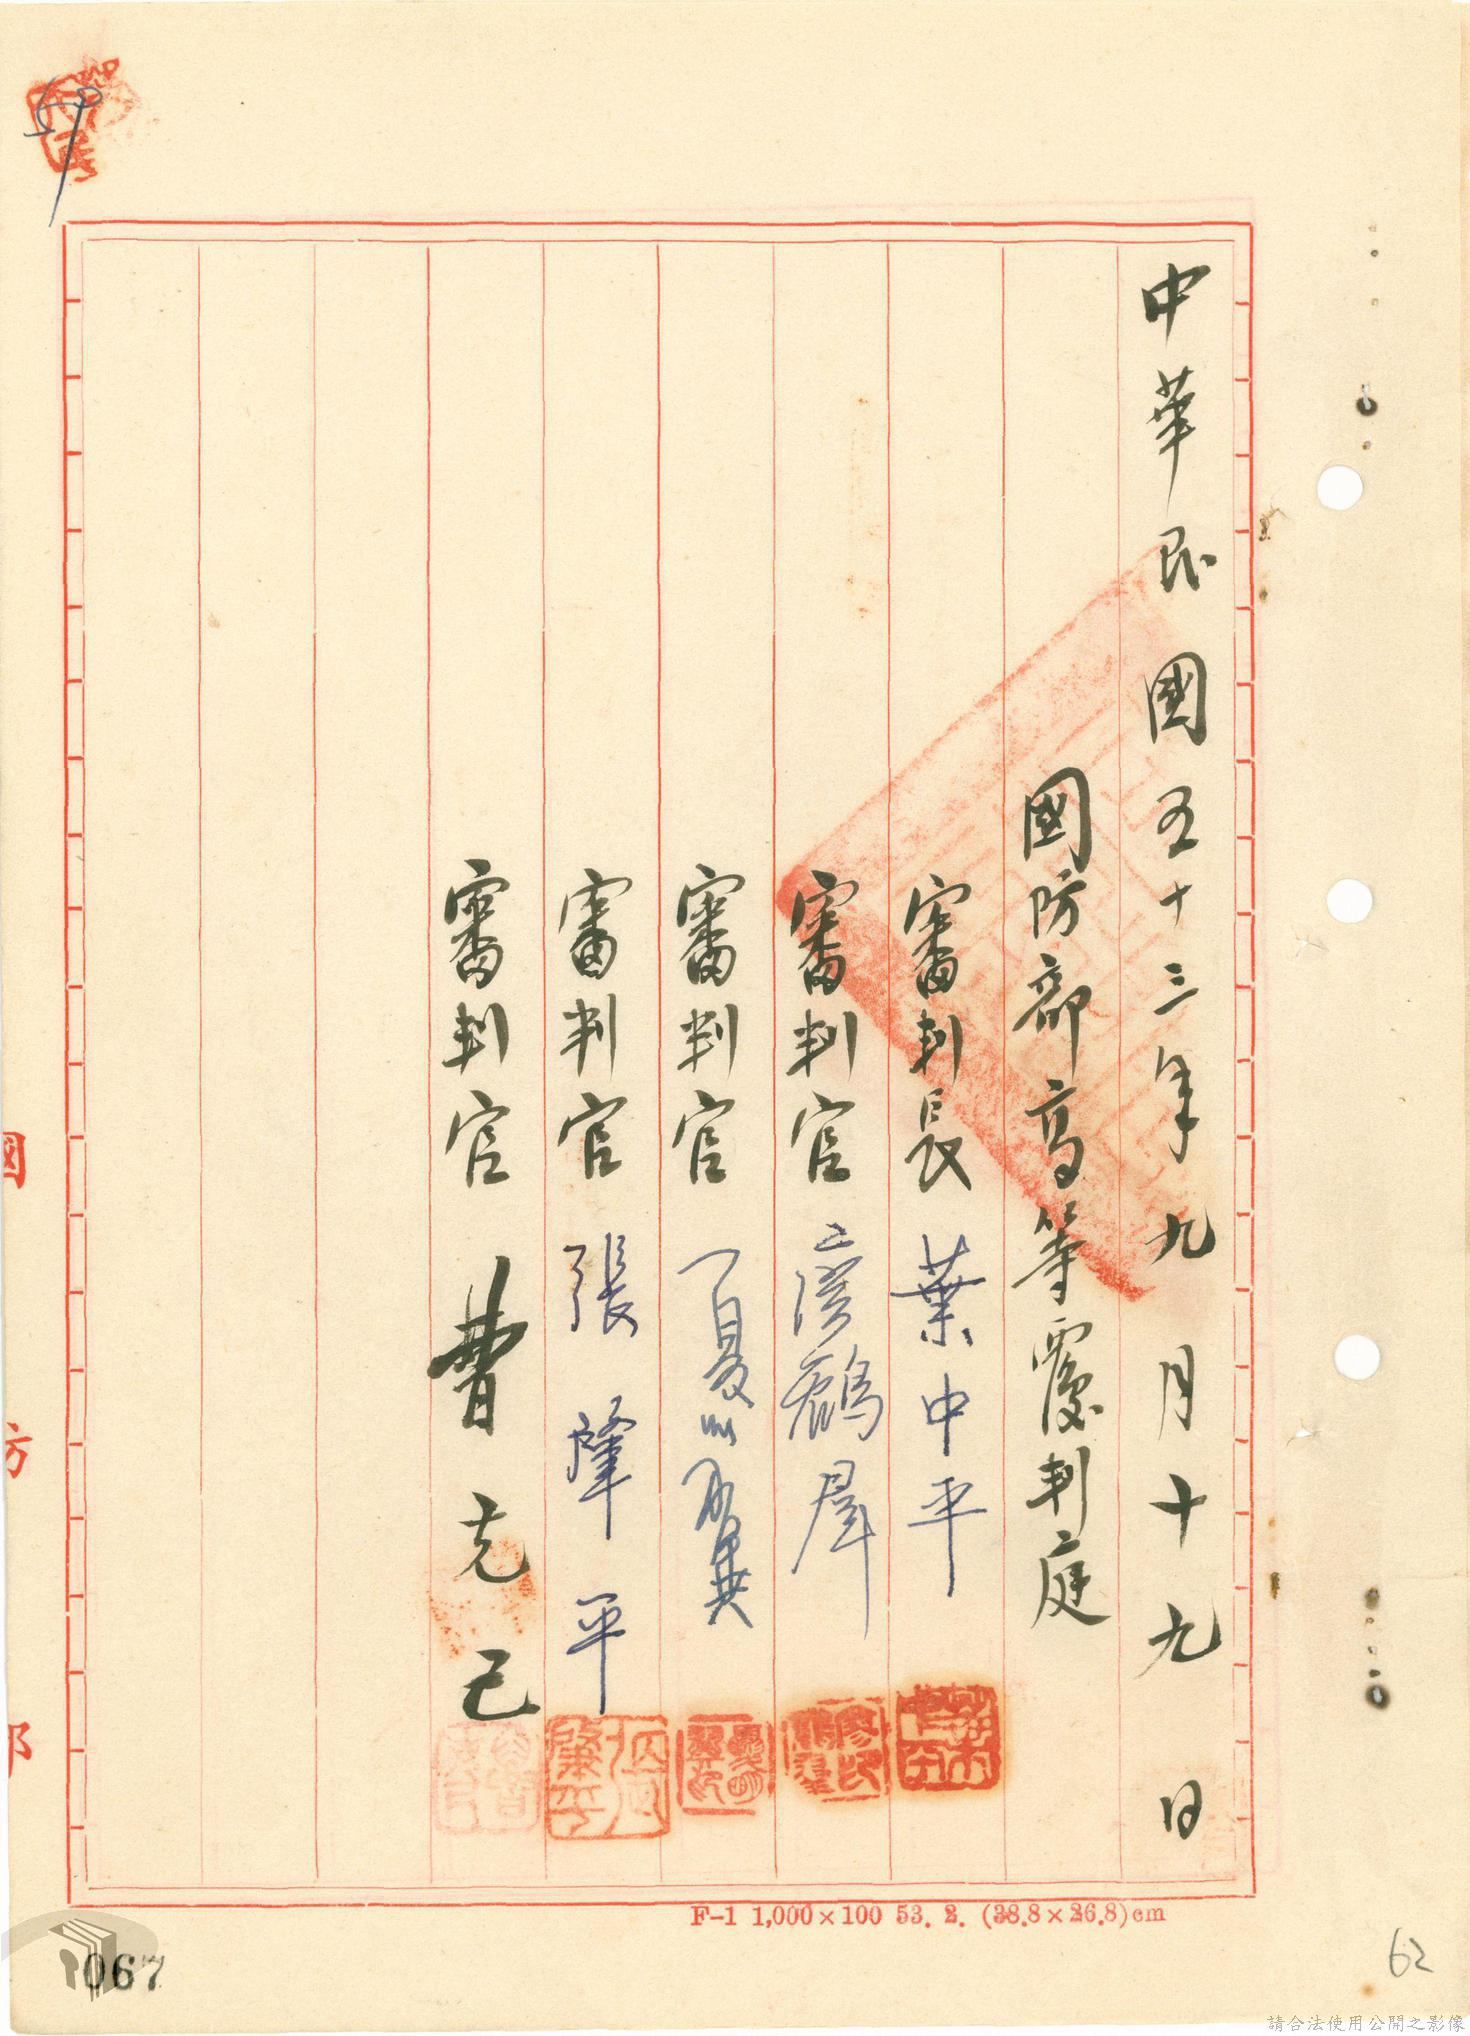 中華民國五十三年九月十九日
國防部高等覆判庭
審判長 葉中平
審判官 廖鶴群
審判官 夏曦翼
審判官 張肇平
審判官 曹克己
國防部
F-1 1,000×100 53. 2. (38.8×26.8)cm
067
62
請合法使用公開之影像